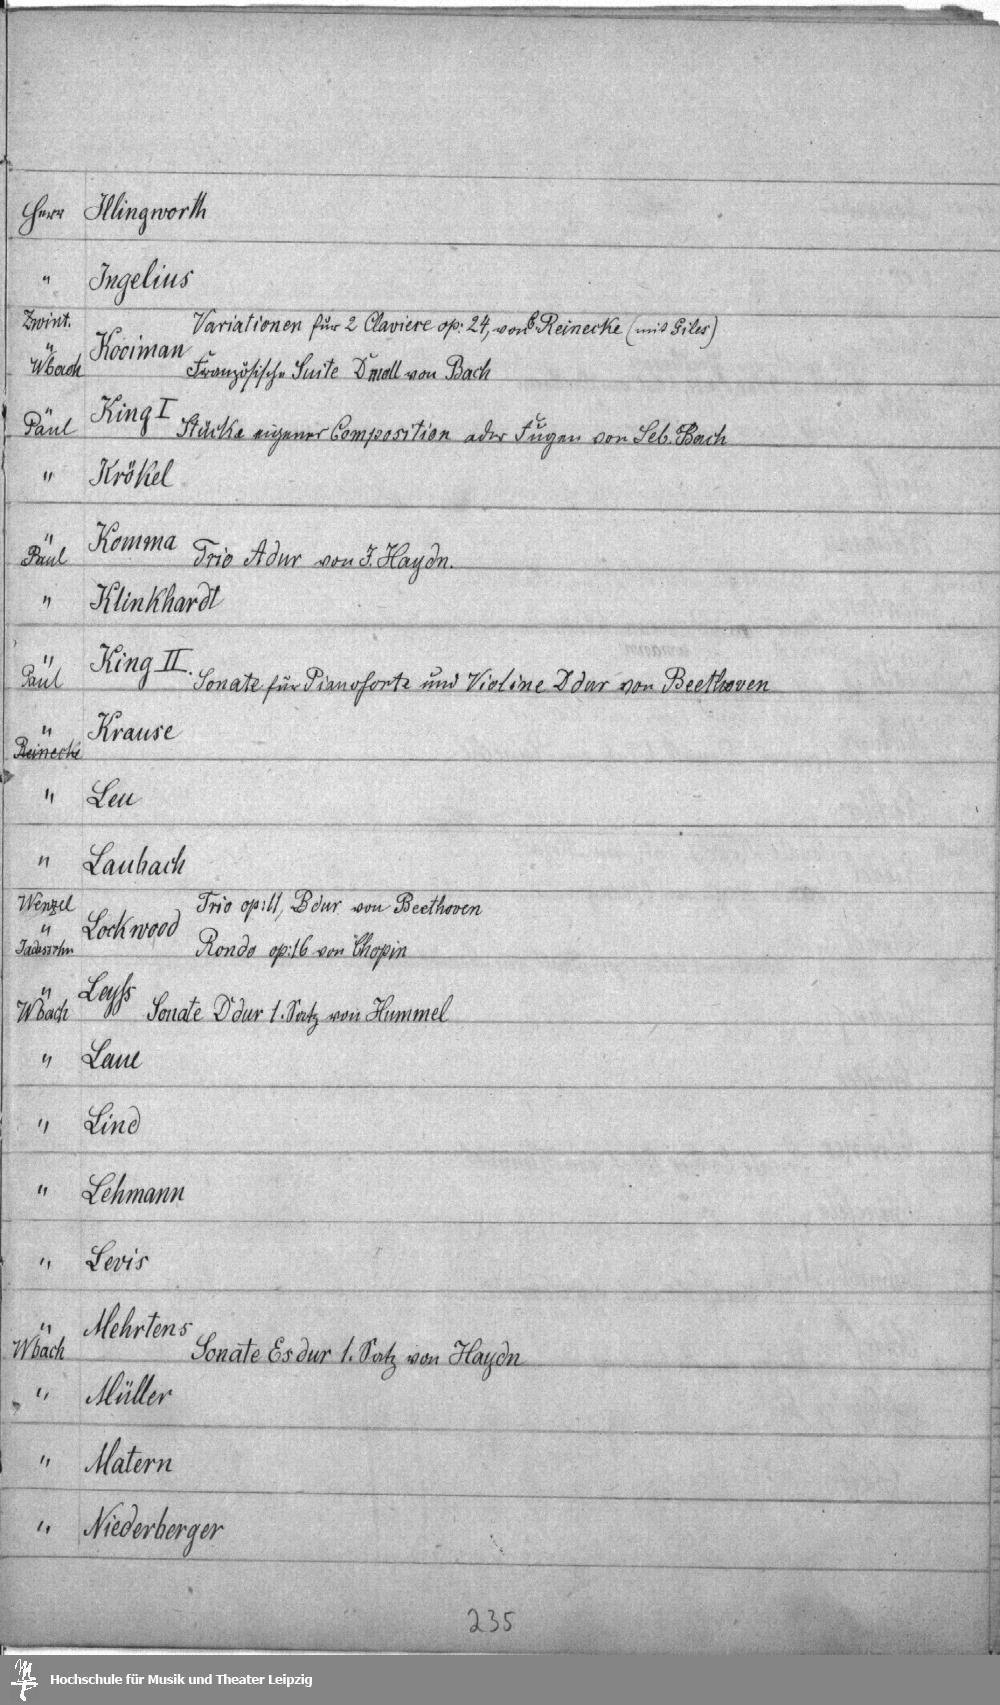 Herr Illingworth
" Ingelius
Zwint. Variationen für 2 Claviere op: 24, von C. Reinecke (mit Giles)
" Kooiman
Wbach Französische Suite Dmoll von Bach
" King I
Paul Stücke eigener Composition oder Fugen von Seb. Bach
" Krökel
" Komma
Paul Trio Adur von J. Haydn.
" Klinkhardt
" King II.
Paul Sonate für Pianoforte und Violine Ddur von Beethoven
" Krause
Reinecke
" Leu
" Laubach
Wenzel Trio op: 11, Bdur von Beethoven
" Lockwood
Jadassohn Rondo op: 16 von Chopin
" Leyss
Wbach Sonate Ddur 1. Satz von Hummel
" Laue
" Lind
" Lehmann
" Levis
" Mehrtens
Wbach Sonate Esdur 1. Satz von Haydn
" Müller
" Matern
" Niederberger
235
Hochschule für Musik und Theater Leipzig